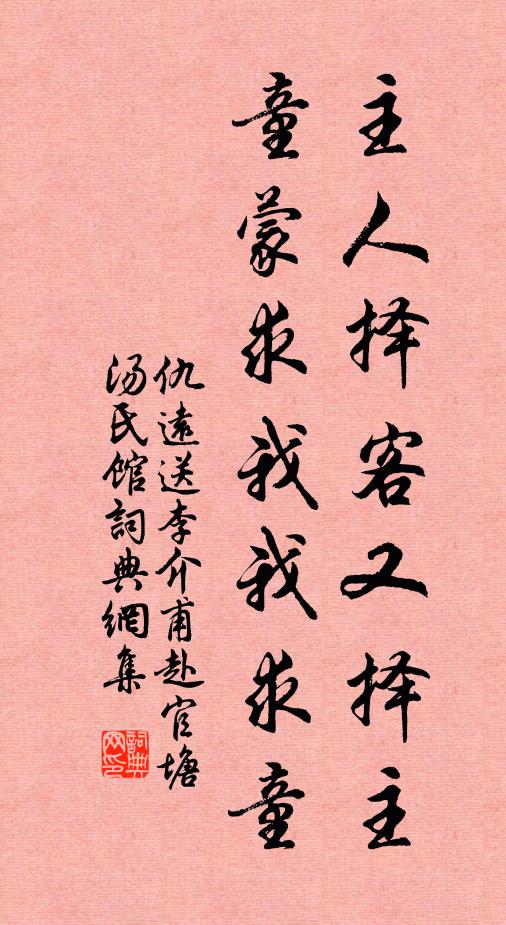 主人择客又择主
童蒙求我我求童
仇遠送李介甫赴官塘
湯氏館詞典網集
詞典
网印